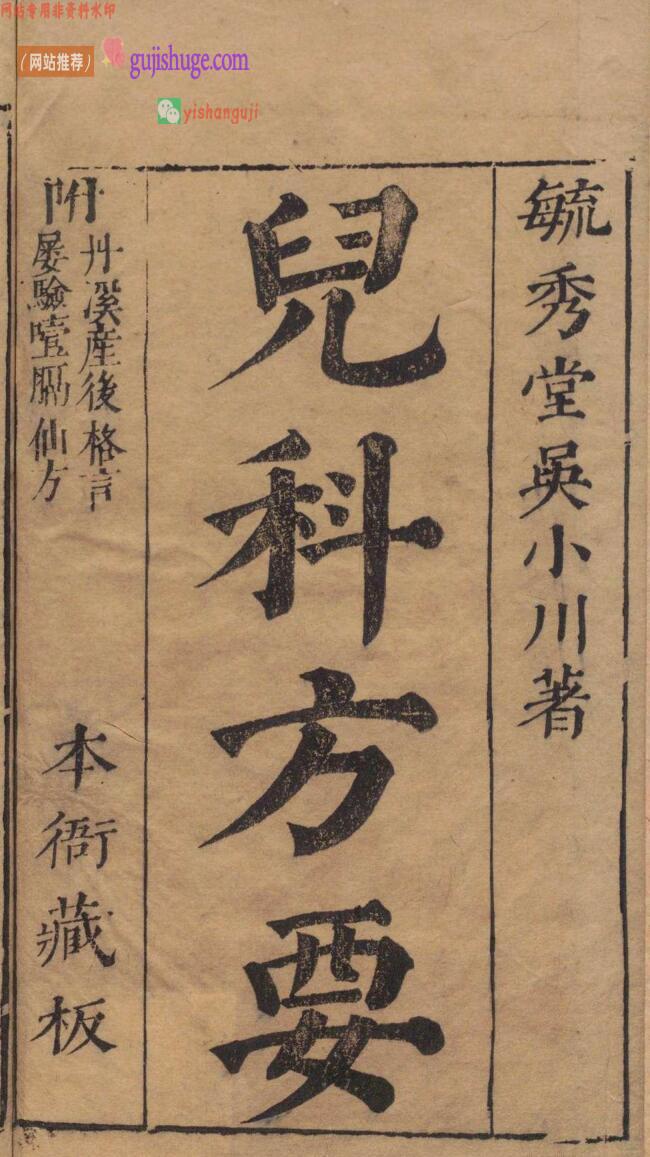 网站专用非资料水印
（网站推荐）
gujishuge.com
yishanguji
毓秀堂吳小川著
兒科方要
附
丹溪産後格言
屡驗噎膈仙方
本衙藏板